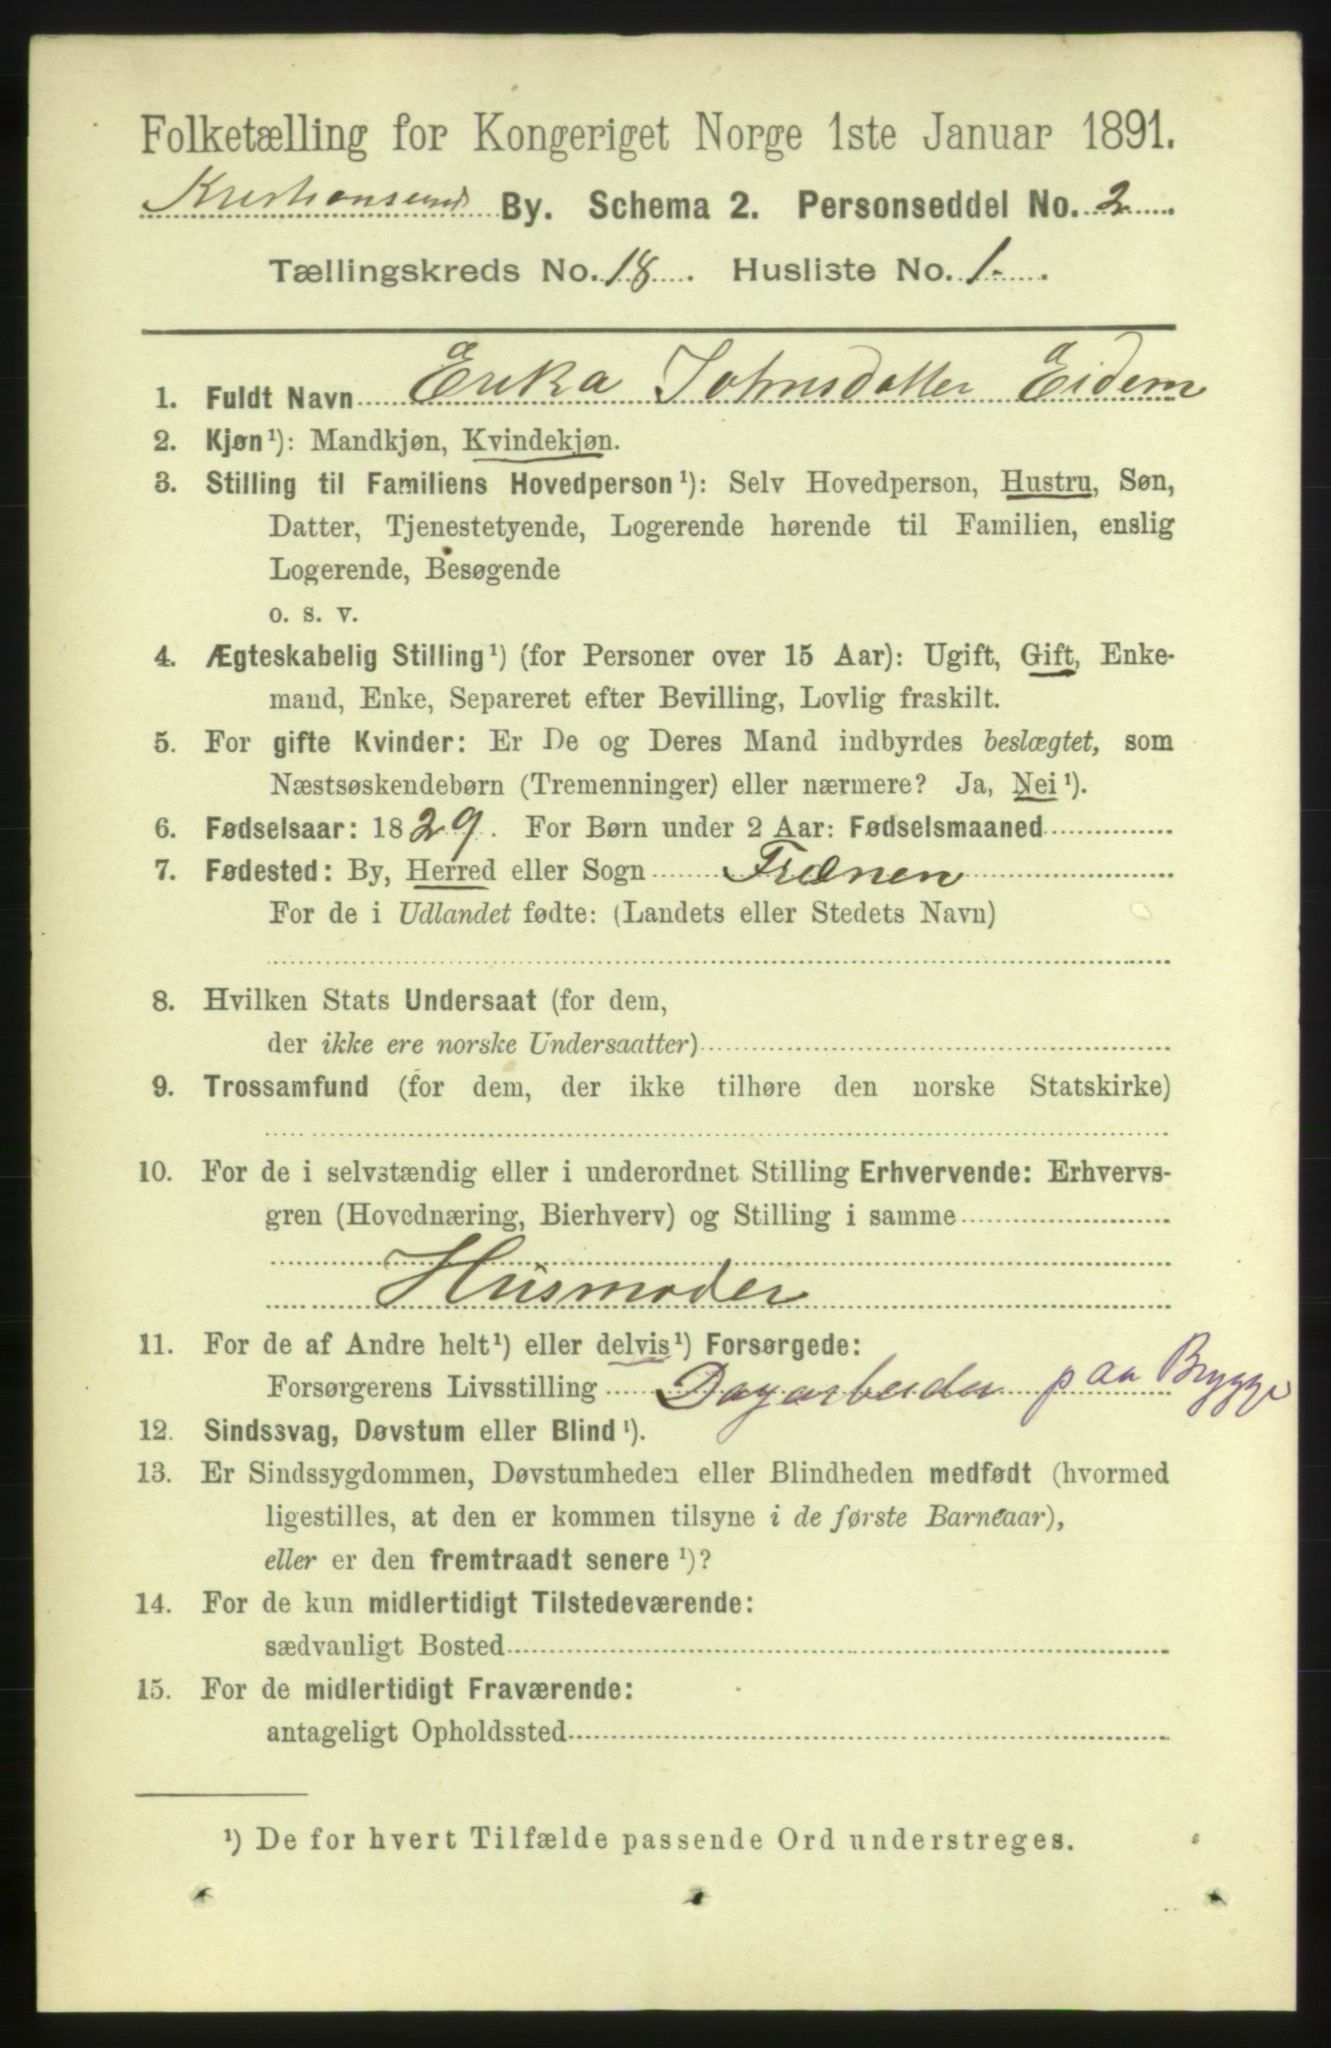 Folketælling for Kongeriget Norge 1ste Januar 1891.
Kristiansund By. Schema 2. Personseddel No. 2
Tællingskreds No. 18. Husliste No. 1-
1. Fuldt Navn Erika Johnsdatter Eidem
2. Kjøn¹): Mandkjøn, Kvindekjøn.
3. Stilling til Familiens Hovedperson¹): Selv Hovedperson, Hustru, Søn,
Datter, Tjenestetyende, Logerende hørende til Familien, enslig
Logerende, Besøgende
o. s. v.
4. Ægteskabelig Stilling¹) (for Personer over 15 Aar): Ugift, Gift, Enke-
mand, Enke, Separeret efter Bevilling, Lovlig fraskilt.
5. For gifte Kvinder: Er De og Deres Mand indbyrdes beslægtet, som
Næstsøskendebørn (Tremenninger) eller nærmere? Ja, Nei¹).
6. Fødselsaar: 1829. For Børn under 2 Aar: Fødselsmaaned
7. Fødested: By, Herred eller Sogn Frænen
For de i Udlandet fødte: (Landets eller Stedets Navn)
8. Hvilken Stats Undersaat (for dem,
der ikke ere norske Undersaatter)
9. Trossamfund (for dem, der ikke tilhøre den norske Statskirke)
10. For de i selvstændig eller i underordnet Stilling Erhvervende: Erhvervs-
gren (Hovednæring, Bierhverv) og Stilling i samme
Husmoder
11. For de af Andre helt¹) eller delvis¹) Forsørgede:
Forsørgerens Livsstilling Dagarbeider paa Brygge
12. Sindssvag, Døvstum eller Blind¹).
13. Er Sindssygdommen, Døvstumheden eller Blindheden medfødt (hvormed
ligestilles, at den er kommen tilsyne i de første Barneaar),
eller er den fremtraadt senere¹)?
14. For de kun midlertidigt Tilstedeværende:
sædvanligt Bosted
15. For de midlertidigt Fraværende:
antageligt Opholdssted
¹) De for hvert Tilfælde passende Ord understreges.